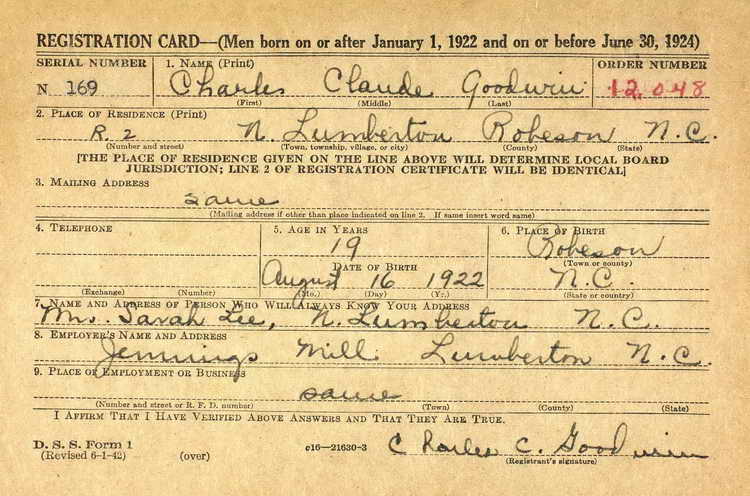 REGISTRATION CARD—(Men born on or after January 1, 1922 and on or before June 30, 1924)
SERIAL NUMBER 1. NAME (Print) ORDER NUMBER
N 169 Charles Claude Goodwin 12,048
(First) (Middle) (Last)
2. PLACE OF RESIDENCE (Print)
R. 2 N. Lumberton Robeson N.C.
(Number and street) (Town, township, village, or city) (County) (State)
[THE PLACE OF RESIDENCE GIVEN ON THE LINE ABOVE WILL DETERMINE LOCAL BOARD
JURISDICTION; LINE 2 OF REGISTRATION CERTIFICATE WILL BE IDENTICAL]
3. MAILING ADDRESS
same
(Mailing address if other than place indicated on line 2. If same insert word same)
4. TELEPHONE 5. AGE IN YEARS 6. PLACE OF BIRTH
19 Robeson
DATE OF BIRTH (Town or county)
August 16 1922 N.C.
(Exchange) (Number) (Mo.) (Day) (Yr.) (State or country)
7. NAME AND ADDRESS OF PERSON WHO WILL ALWAYS KNOW YOUR ADDRESS
Mrs. Sarah Lee, N. Lumberton N.C.
8. EMPLOYER'S NAME AND ADDRESS
Jennings Mill Lumberton N.C.
9. PLACE OF EMPLOYMENT OR BUSINESS
same
(Number and street or R. F. D. number) (Town) (County) (State)
I AFFIRM THAT I HAVE VERIFIED ABOVE ANSWERS AND THAT THEY ARE TRUE.
D. S. S. Form 1
(Revised 6-1-42) (over) c16—21630-3 Charles C. Goodwin
(Registrant's signature)